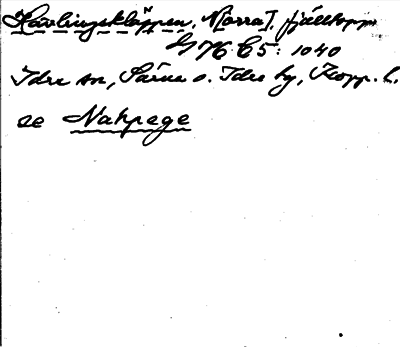 Hävlingskläppen, N[orra], fjälltopp
G 76 C5: 1040
Idre sn, Särna o. Idre hy, Kopp. l.
se Nahpege